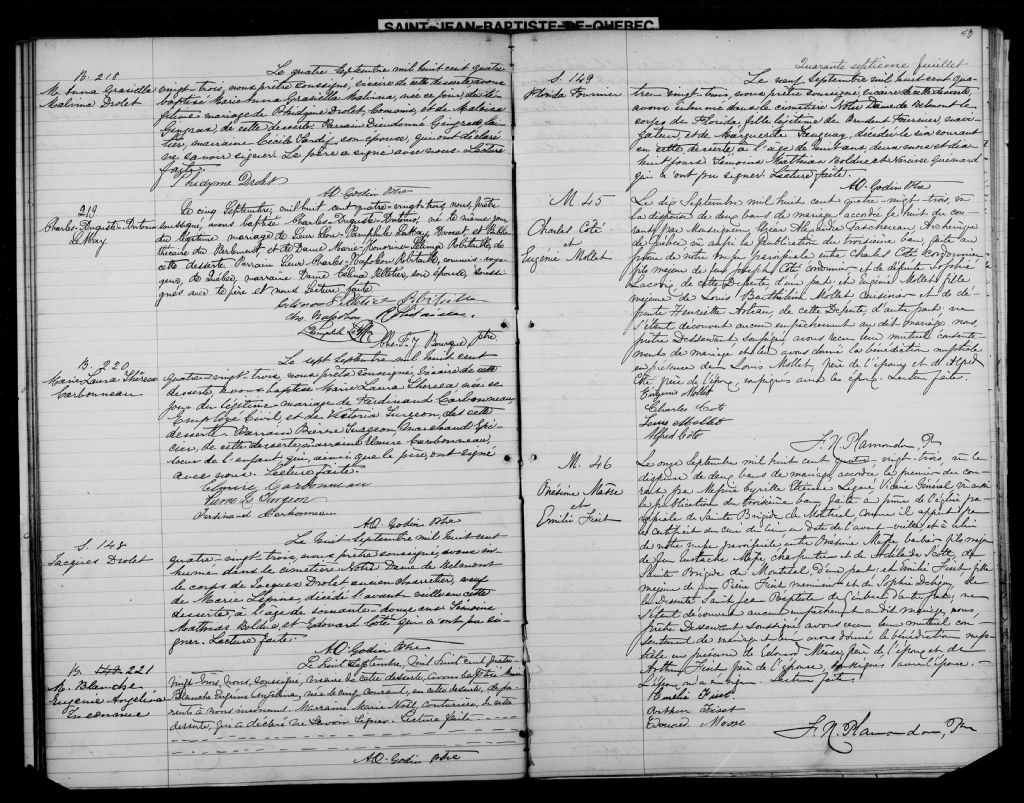 SAINT-JEAN-BAPTISTE-DE-QUEBEC
B. 218
M. Anna Graziella
Malvina Drolet
Le quatre Septembre mil huit cent quatre-
vingt-trois, nous prêtre soussigné, vicaire de cette desserte avons
baptisé Marie Anna Graziella Malvina, née ce jour, du lé-
gitime mariage de Phidyme Drolet, Commis, et de Malvina
Gingras, de cette desserte. Parrain Dieudonné Gingras,
marraine Cécile Tardif, son épouse, qui ont déclaré
ne savoir signer. Le père a signé avec nous. Lecture
faite.
Phidyme Drolet
A.O. Godin Ptre
219
Charles-Auguste-Antonio
LeMay
Le cinq Septembre, mil huit cent quatre-vingt-trois nous prêtre
soussigné, avons baptisé Charles-Auguste-Antonio, né le même jour
du légitime mariage de Sieur Léon-Pamphile LeMay, Avocat, et Biblio-
thécaire du Parlement, et de Dame Marie-Honorine-Sélima Robitaille, de
cette desserte. Parrain Sieur Charles-Napoléon Robitaille, commis-voya-
geur, de Québec, marraine Dame Célina Pelletier, son épouse, soussi-
gnés avec le père et nous. Lecture faite
Chs Napoléon Robitaille
Pamphile LeMay
Chs. F. J. Bourque Ptre
B. 220
Marie-Laura Thérèse
Carbonneau
Le sept Septembre mil huit cent
quatre-vingt-trois, nous prêtre soussigné, vicaire de cette
desserte avons baptisé Marie Laura Thérèsa née ce
jour du légitime mariage de Ferdinand Carbonneau
Employé Civil, et de Victoria Turgeon, de cette
desserte. Parrain Pierre Turgeon, Marchand Epi-
cier, de cette desserte, marraine Elmire Carbonneau,
soeur de l'enfant, qui, ainsi que le père, ont signé
avec nous. Lecture faite
Elmire Carbonneau
Pierre Turgeon
Ferdinand Carbonneau
A.O. Godin Ptre
S. 148
Jacques Drolet
Le huit Septembre mil huit cent
quatre-vingt-trois, nous prêtre soussigné, avons in-
humé dans le cimetière Notre Dame de Belmont
le corps de Jacques Drolet ancien charretier, veuf
de Marie Lépine, décédé l'avant veille en cette
desserte à l'âge de soixante-douze ans. Témoins
Matthias Bolduc, et Edouard Coté qui n'ont pu si-
gner. Lecture faite.
A.O. Godin Ptre
B. 221
M. Blanche
Eugénie Angélina
Inconnue
Le huit Septembre, Mil huit cent quatre-
vingt-trois, nous, soussigné, vicaire de cette desserte, avons baptisé Marie
Blanche Eugénie Angélina, née le cinq courant, en cette desserte, de pa-
rents à nous inconnus. Marraine Marie Noël, Couturière, de cette
desserte, qui a déclaré ne savoir signer. Lecture faite
A.O. Godin Ptre
Quarante septième feuillet
S. 149
Florida Fournier
Le neuf Septembre mil huit cent qua-
tre vingt-trois, nous prêtre soussigné, vicaire de cette desserte,
avons inhumé dans le cimetière Notre Dame de Belmont le
corps de Florida, fille légitime de Prudent Fournier, navi-
gateur, et de Marguerite Tanguay, décédée le six courant
en cette desserte à l'âge de huit ans, deux mois et dix
huit jours. Témoins Matthias Bolduc et Narcisse Guénard
qui n'ont pu signer. Lecture faite.
A.O. Godin Ptre
M 45
Charles Coté
et
Eugénie Mollet
Le dix Septembre mil huit cent quatre-vingt-trois, vu
la dispense de deux bans de mariage accordée le huit du cou-
rant par Monseigneur Elzéar Alexandre Taschereau Archevêque
de Québec, vu aussi la publication du troisième ban faite au
prône de notre messe paroissiale entre Charles Coté Cordonnier
fils majeur de feu Joseph Coté Cordonnier et de défunte Sophie
Lacroix, de cette Desserte d'une part, et Eugénie Mollet fille
majeure de Louis Barthélemi Mollet cuisinier et de dé-
funte Henriette de cette Desserte, d'autre part, ne
s'étant découvert aucun empêchement au dit mariage nous
prêtre Desservant soussigné, avons reçu leur mutuel consente-
ment de mariage et leur avons donné la bénédiction nuptiale
en présence de Louis Mollet, père de l'épouse et d'Alfred
Coté, frère de l'époux, soussignés avec les époux. Lecture faite.
Eugénie Mollet
Charles Coté
Louis Mollet
Alfred Coté
F. X. Plamondon, Ptre
M. 46
Onésime Masse
et
Emilie Fiset
Le onze Septembre mil huit cent quatre-vingt-trois, vu la
dispense de deux bans de mariage accordée le premier du cou-
rant par Messire Cyrille Etienne Légaré Vicaire Général, vu aussi
la publication du troisième ban faite au prône de l'église pa-
roissiale de Sainte Brigide de Montréal comme il appert par
le certificat du curé du lieu en date de l'avant-veille et à celui
de notre messe paroissiale, entre Onésime Masse fils majeur
de feu Eustache Masse, charpentier et de
Sainte Brigide de Montréal d'une part, et Emilie Fiset fille
majeure de feu Pierre Fiset menuisier et de Sophie de
la desserte Saint Jean Baptiste de Québec d'autre part, ne
s'étant découvert aucun empêchement au dit mariage, nous,
prêtre Desservant soussigné avons reçu leur mutuel con-
sentement de mariage et leur avons donné la bénédiction nup-
tiale en présence de Edouard Masse, frère de l'époux et de
Arthur Fiset frère de l'épouse, soussignés avec l'épouse.
L'époux n'a su signer. Lecture faite.
Emilie Fiset
Arthur Fiset
Edouard Masse
F. X. Plamondon, Ptre